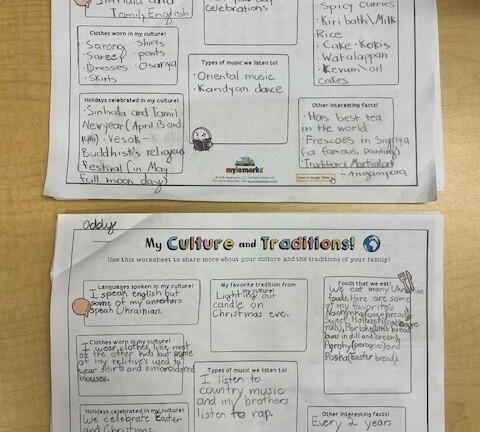 Sinhala and
Tamil, English
celebrations
Spicy curries
· Kiribath\Milk
Rice
· Cake · Kokis
· Watalappan
· Kevum\oil
cakes
Clothes worn in my culture!
· Sarong · Shirts
· Sareey · pants
· Dresses · Osariya
· Skirts
Types of music we listen to!
· Oriental music
· Kandyan dance
Holidays celebrated in my culture!
· Sinhala and Tamil
Newyear (April 13 and
14th) · Vesak -
Buddhist's religous
Festival (in May
full moon day)
Other interesting facts!
· Has best tea
in the world
· Frescoes in Sigiriya
(a famous painting)
· Traditional Martial art
- Angampora
mylemarks
Open in Google Slides
Oddy
My Culture and Traditions!
Use this worksheet to share more about your culture and the traditions of your family!
Languages spoken in my culture!
I speak english but
some of my ancestors
speak Ukrainian.
My favorite tradition from
my culture!
Lighting our
candle on
Christmas eve.
Foods that we eat!
We eat many
foods. Here are some
of my favorite's
bread)
buns in dill and cream),
and
Paska (Easter bread).
Clothes worn in my culture!
I wear clothes, like most
of the other kids but some
of my relitive's used to
wear shirts and embroidered
blouses.
Types of music we listen to!
I listen to
country music
and my brothers
listen to rap.
Holidays celebrated in my culture!
We celebrate Easter
and Christmas.
Other interesting facts!
Every 2 years